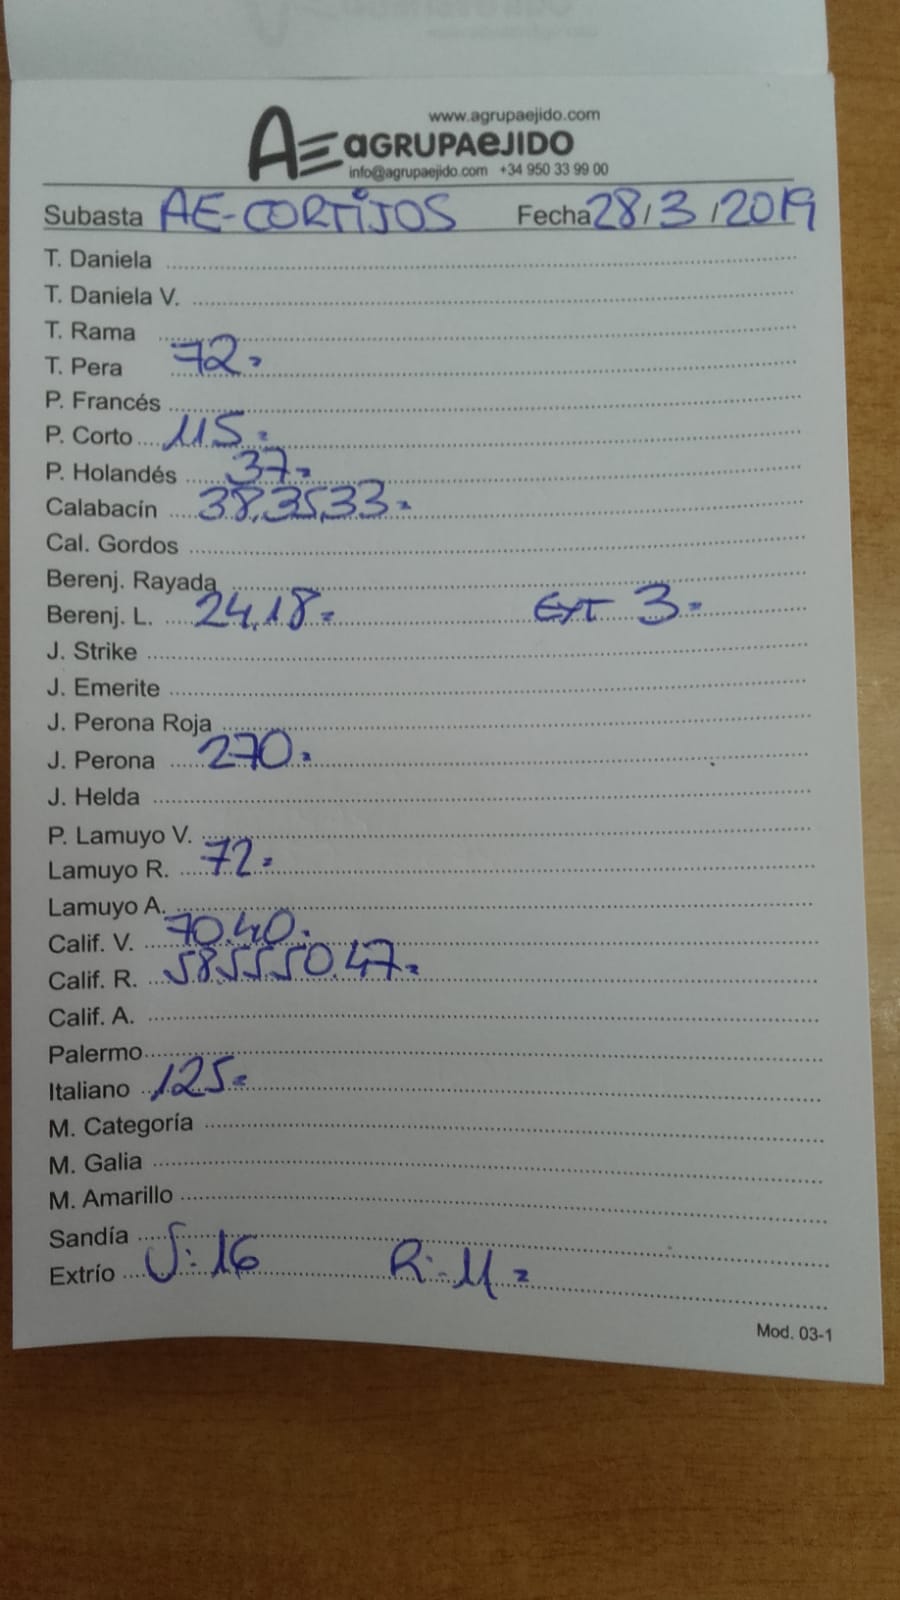 www.agrupaejido.com
AE aGRUPAeJIDO
info@agrupaejido.com +34 950 33 99 00
Subasta AE-CORTIJOS Fecha 28/3/2019
T. Daniela
T. Daniela V.
T. Rama
T. Pera 72=
P. Francés
P. Corto 115=
P. Holandés 37=
Calabacín 38,35,33=
Cal. Gordos
Berenj. Rayada
Berenj. L. 24,18= EXT 3=
J. Strike
J. Emerite
J. Perona Roja
J. Perona 270=
J. Helda
P. Lamuyo V.
Lamuyo R. 72=
Lamuyo A.
Calif. V. 70,40=
Calif. R. 58,55,50,47=
Calif. A.
Palermo
Italiano 125=
M. Categoría
M. Galia
M. Amarillo
Sandía
Extrío V: 16 R: 11=
Mod. 03-1